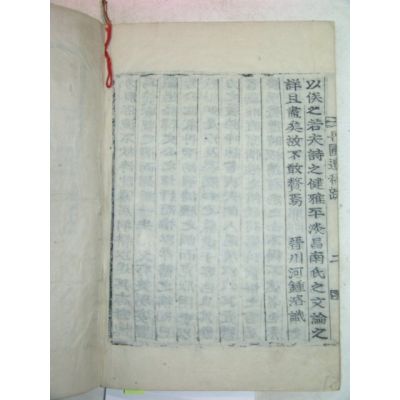 圃遺稿跋 二
以俟之若夫詩之健雅平淡昌南氏之文論之
詳且盡矣故不敢贅焉 晉川河鍾洛識